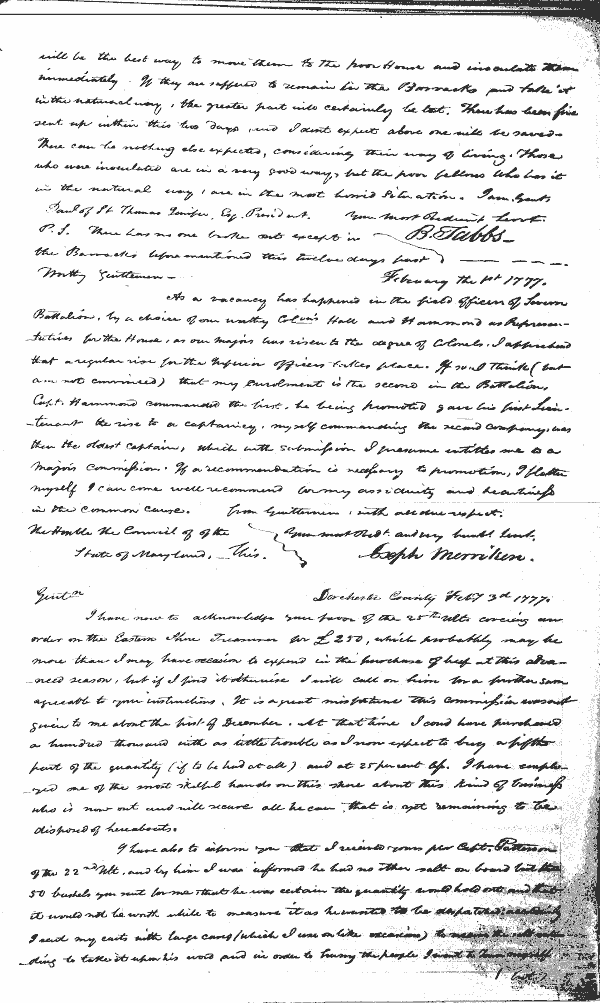 will be the best way to move them to the poor House and inoculate them
immediately. If they are suffered to remain in the Barracks and take it
in the natural way, the greater part will certainly be lost. There has been five
sent up within this two days, and I dont expect above one will be saved.
There can be nothing else expected, considering their way of living. Those
who were inoculated are in a very good way, but the poor fellows who has it
in the natural way, are in the most horrid situation. I am Gents
Danl of St Thomas Jenifer, Esq. President. Your most Obedient Servt
P.S. There has no one broke out except in B. Tabbs
the Barracks before mentioned this twelve days past
Worthy Gentlemen February the 1st 1777.
As a vacancy has happened in the field officers of Severn
Battalion, by a choice of our worthy Colonls Hall and Hammond as Represen-
tatives for the House, as our majors was risen to the degree of Colonels, I apprehend
that a regular rise for the Inferior officers takes place. If so I think (but
am not convinced) that my enrolment is the second in the Battalion,
Capt. Hammond commanded the first, he being promoted gave his first Lieu-
tenant the rise to a captaincy, myself commanding the second company, was
then the oldest captain, which with submission I presume entitles me to a
majors commission. If a recommendation is necessary to promotion, I flatter
myself I can come well recommend for my assiduity and heartiness
in the common cause. from Gentlemen, with all due respect.
the Honble the Council of of the Your most Obdt. and very humbl Servt.
State of Maryland, This. Joseph Merriken.
Gentn Dorchester County Feby 3d 1777.
I have now to acknowledge your favor of the 25th Ulto covering an
order on the Eastern Shore Treasurer for £250, which probably may be
more than I may have occasion to expend in the purchase of beef at this advan-
ced season, but if I find it otherwise I will call on him for a further sum
agreeable to your instructions. It is a great misfortune this commission was not
given to me about the first of December. At that time I coud have purchased
a hundred thousand with as little trouble as I now expect to buy a fifth
part of the quantity (if to be had at all) and at 25 percent less. I have employ-
yed one of the most skilful hands on this shore about this kind of business
who is now out and will secure all he can that is yet remaining to be
disposed of hereabouts.
I have also to inform you that I received yours per Capt. Patterson
of the 22nd Ult. and by him I was informed he had no other salt on board but the
50 bushels you sent for me that he was certain the quantity would hold out and that
it would not be worth while to measure it as he wanted to be dispatched
I sent my carts with large (which I use on like occasion) to
ding to take it upon his word and in order to hurry the people I went to down myself